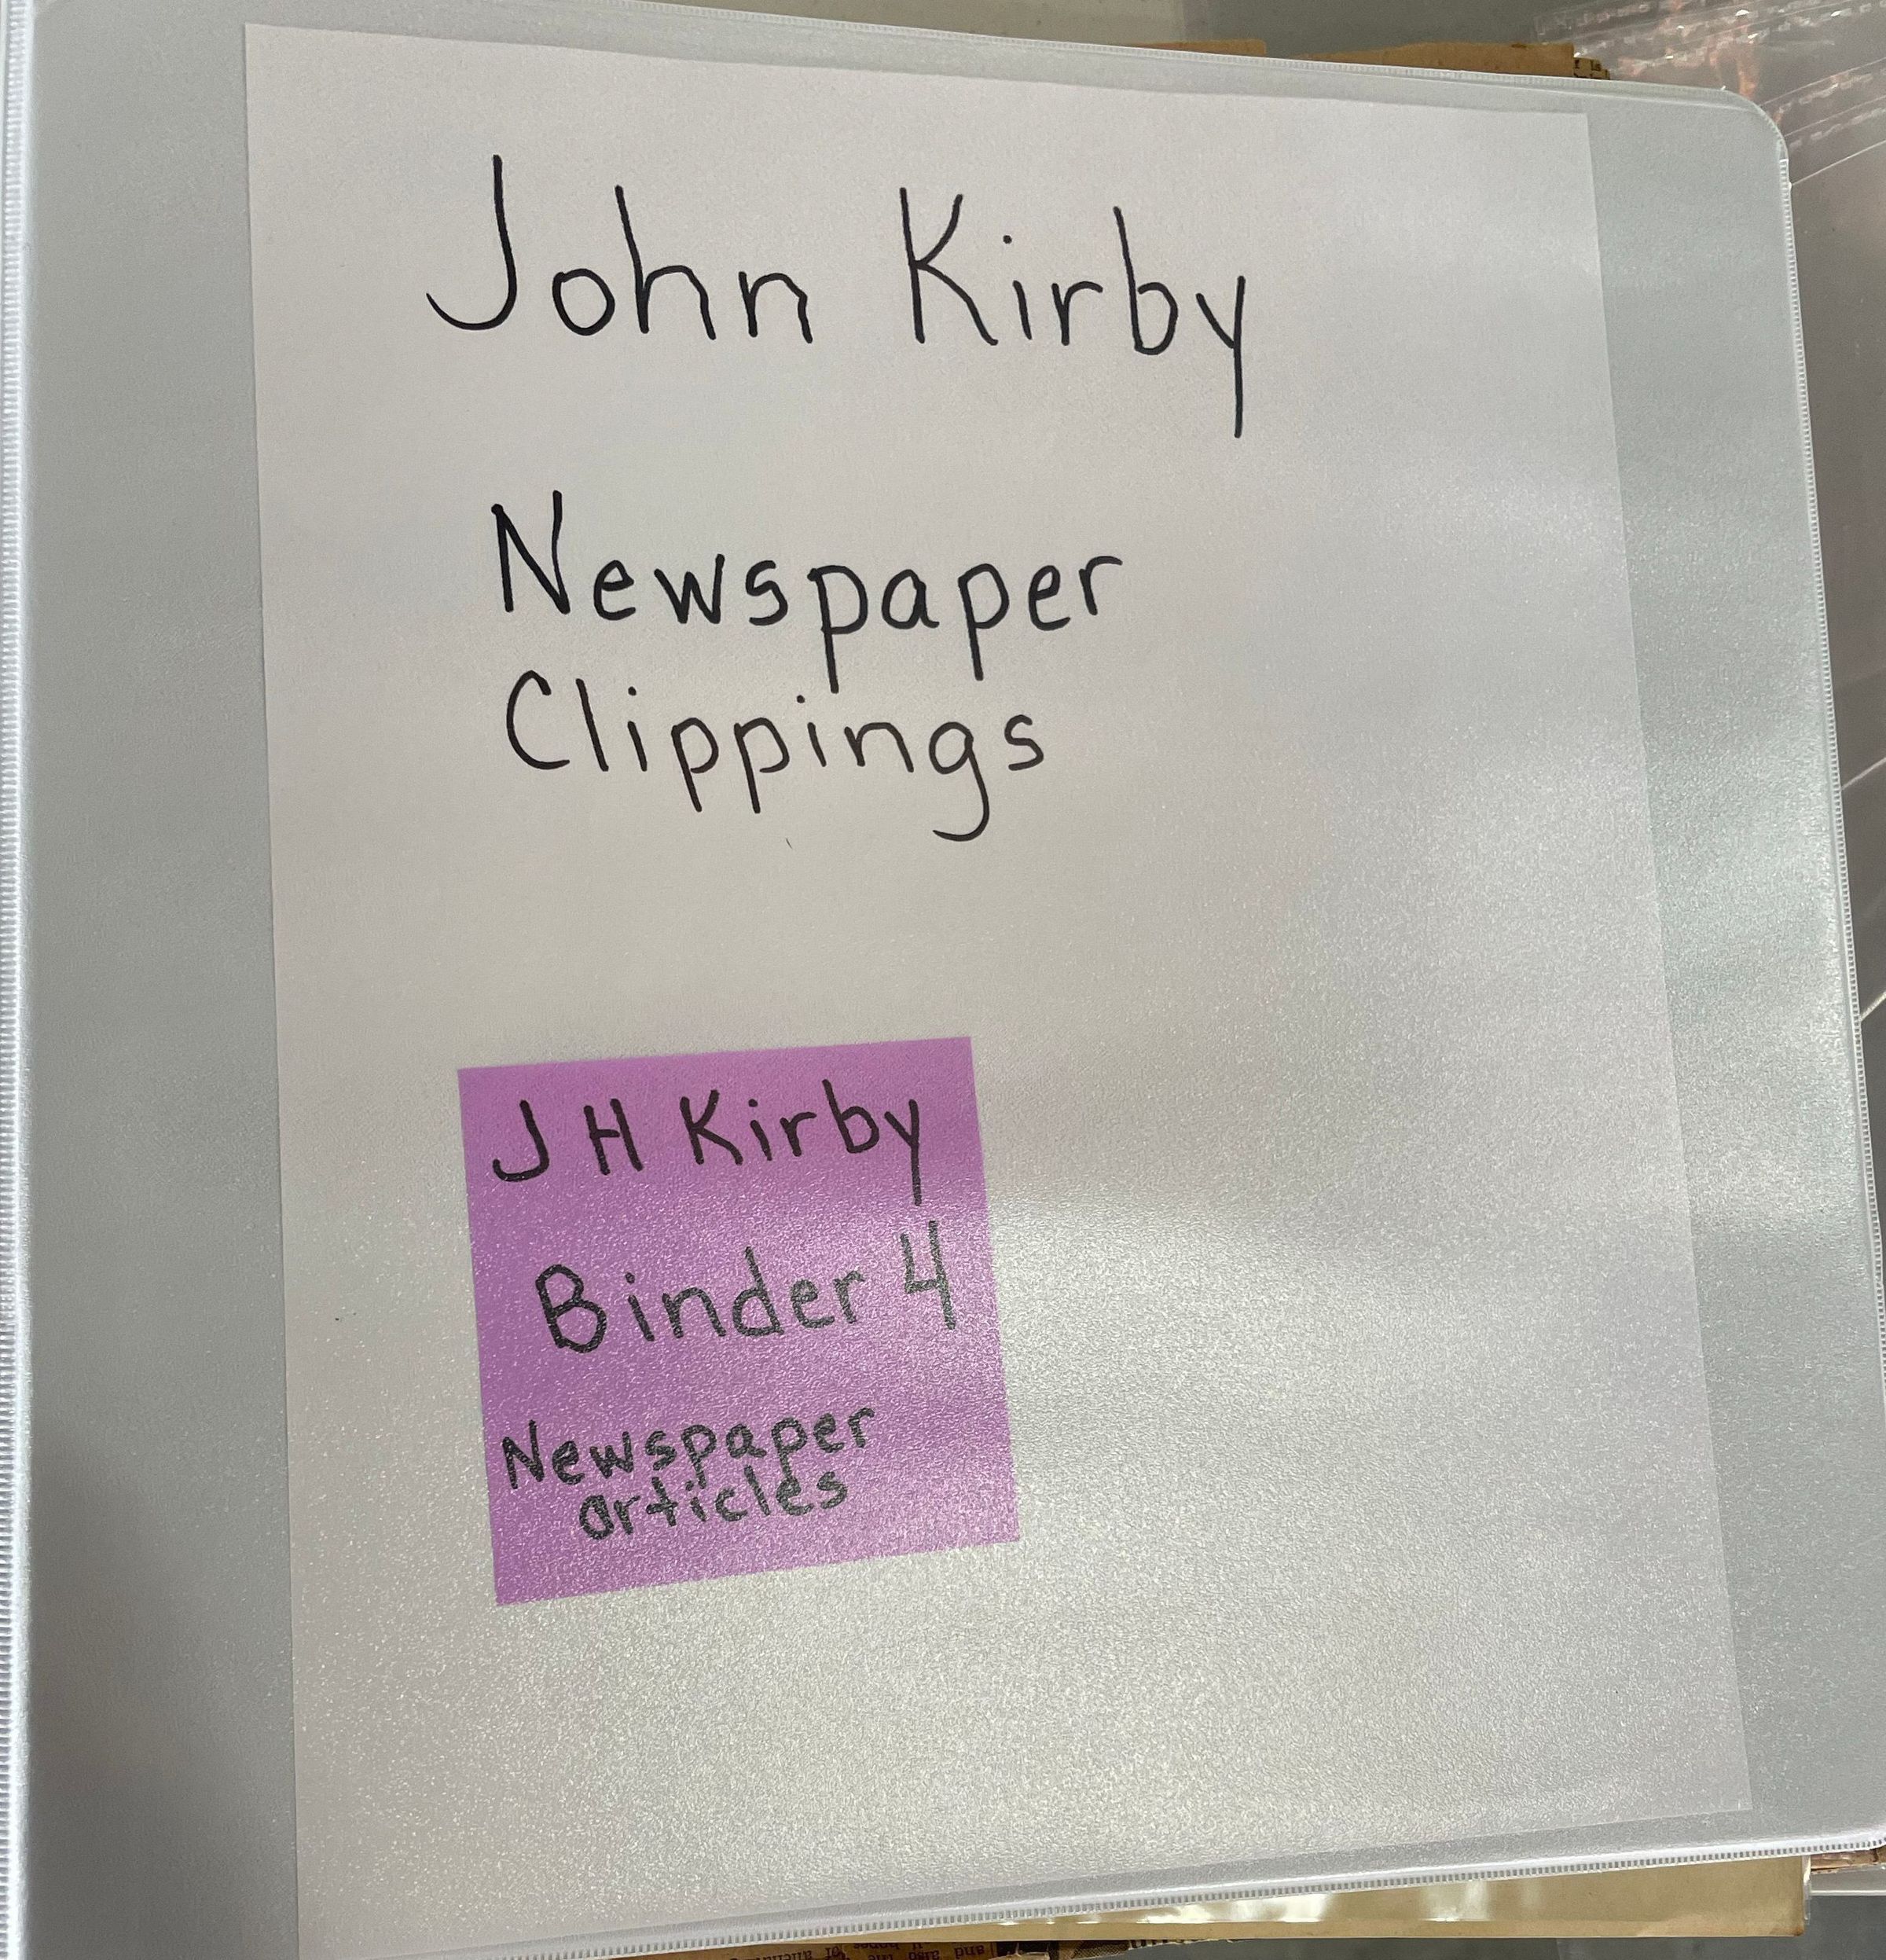 John Kirby
Newspaper
Clippings
J H Kirby
Binder 4
Newspaper
articles